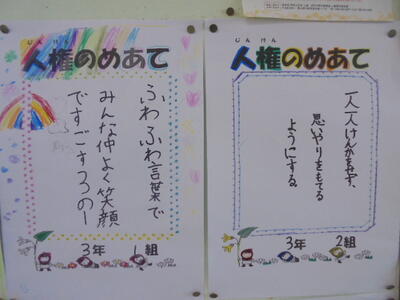 じん けん
人権のめあて
ふわふわ言葉で
みんな仲よく笑顔
ですごすろのー
3年 1組
じん けん
人権のめあて
一人一人けんかをせず、
思いやりをもてる
ようにする。
3年 2組